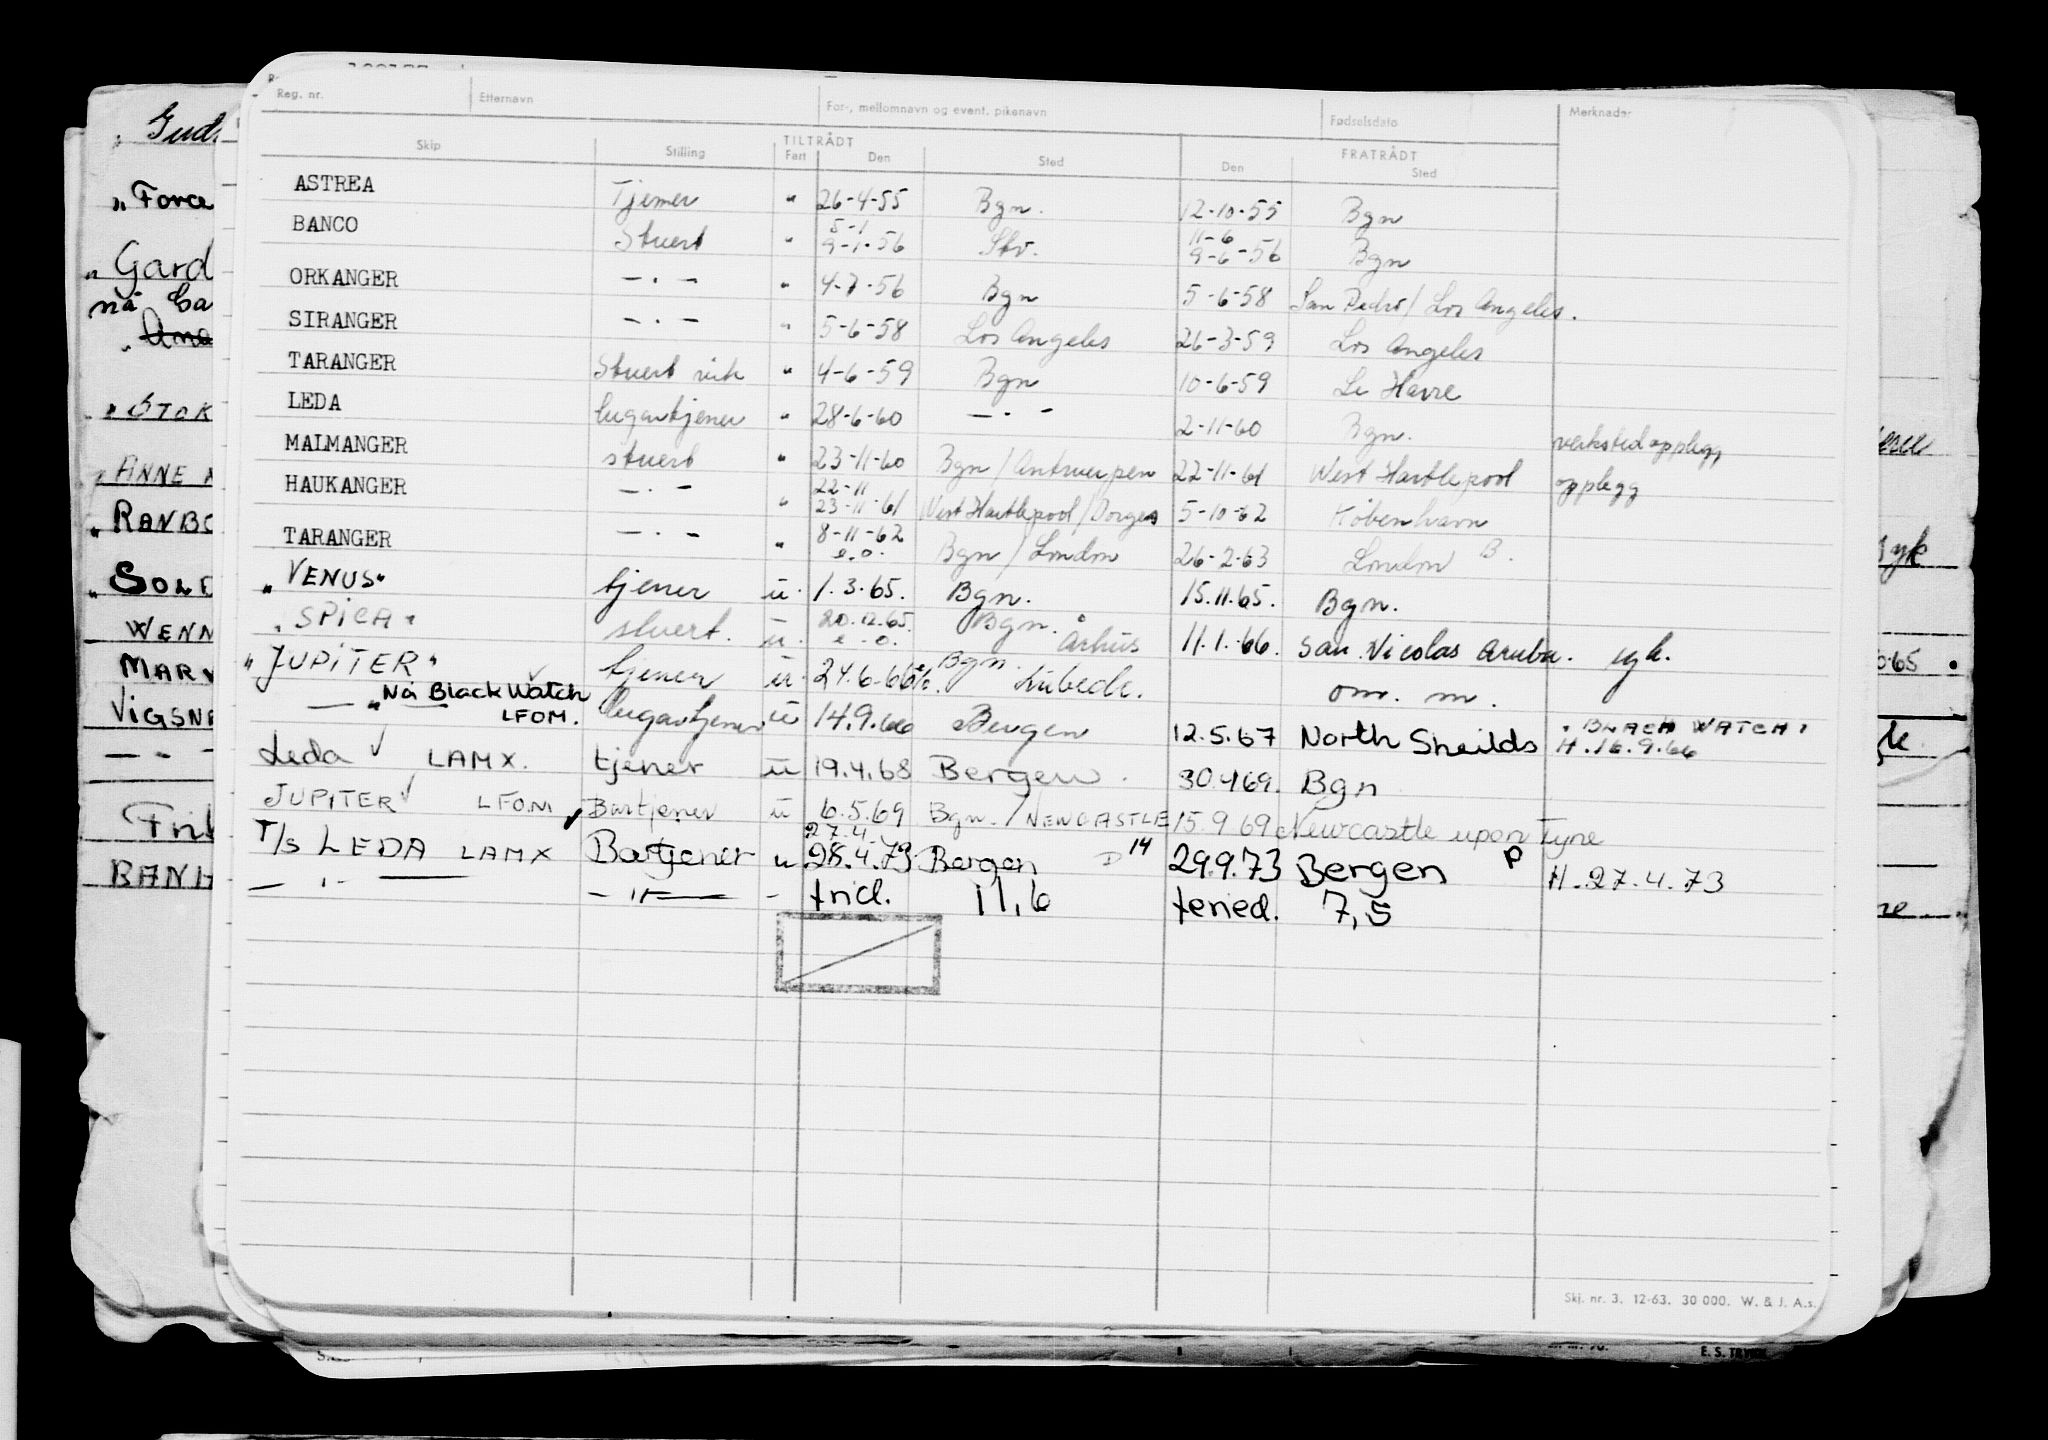 Reg. nr. Etternavn For-, mellomnavn og event. pikenavn Fødselsdato Merknader
TILTRÅDT FRATRÅDT
Skip Stilling Fart Den Sted Den Sted
ASTREA Tjener " 26-4-55 Bgn. 12-10-55 Bgn
5-1 11-6
BANCO Stuert " 9-1-56 Stv. 9-6-56 Bgn
ORKANGER — . — " 4-7-56 Bgn 5-6-58 San Pedro / Los Angeles.
SIRANGER — . — " 5-6-58 Los Angeles 26-3-59 Los Angeles
TARANGER Stuert vik " 4-6-59 Bgn 10-6-59 Le Havre
LEDA lugartjener " 28-6-60 — . — 2-11-60 Bgn. verkstedopplegg
MALMANGER stuert " 23-11-60 Bgn / Antwerpen 22-11-61 West Hartlepool opplegg
22-11
HAUKANGER — . — " 23-11-61 West Hartlepool / 5-10-62 København
TARANGER — . — " 8-11-62 Bgn / London 26-2-63 London B.
e.o.
"VENUS" tjener u. 1.3.65. Bgn. 15.11.65. Bgn.
"SPICA" stuert. u. 20.12.65. Bgn. Århus 11.1.66. San Nicolas Aruba. syk.
e.o.
"JUPITER" tjener u. 24.6.66 Bgn. Lübeck. om. m.
— " — Nå Black Watch lugartjener u 14.9.66 Bergen 12.5.67 North Sheilds "BLACK WATCH"
LFOM. H.16.9.66
Leda ✓ LAMX. tjener u 19.4.68 Bergen. 30.4.69. Bgn
JUPITER ✓ LFOM Bartjener u 6.5.69 Bgn. / NEWCASTLE 15.9.69 Newcastle upon Tyne
27.4
T/S LEDA LAMX Bartjener u 28.4.73 Bergen D 14 29.9.73 Bergen P H.27.4.73
— " — — " — - frid. 11,6 feried. 7,5
Skj. nr. 3. 12-63. 30 000. W. & J. A.s.
Gud
"Force
"Gard
nå
"STOK
"ANNE
"RANBO
"SOLE
WENN
MARY
VIGSNE
— " —
BANH
syk
65
E. S.